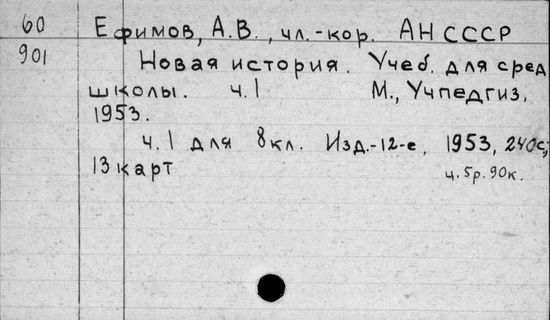 60 Ефимов, А.В., чл.-кор. АН СССР
901 Новая история. Учеб. для сред
школы. ч.1 М., Учпедгиз,
1953.
ч.1 для 8кл. Изд.-12-е, 1953, 240с;
13 карт ц. 5р. 90к.